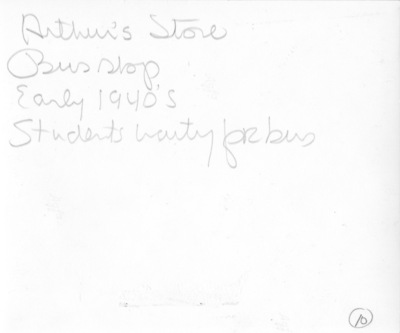 Arthur's Store
Bus stop
Early 1940's
Students waiting for bus
10